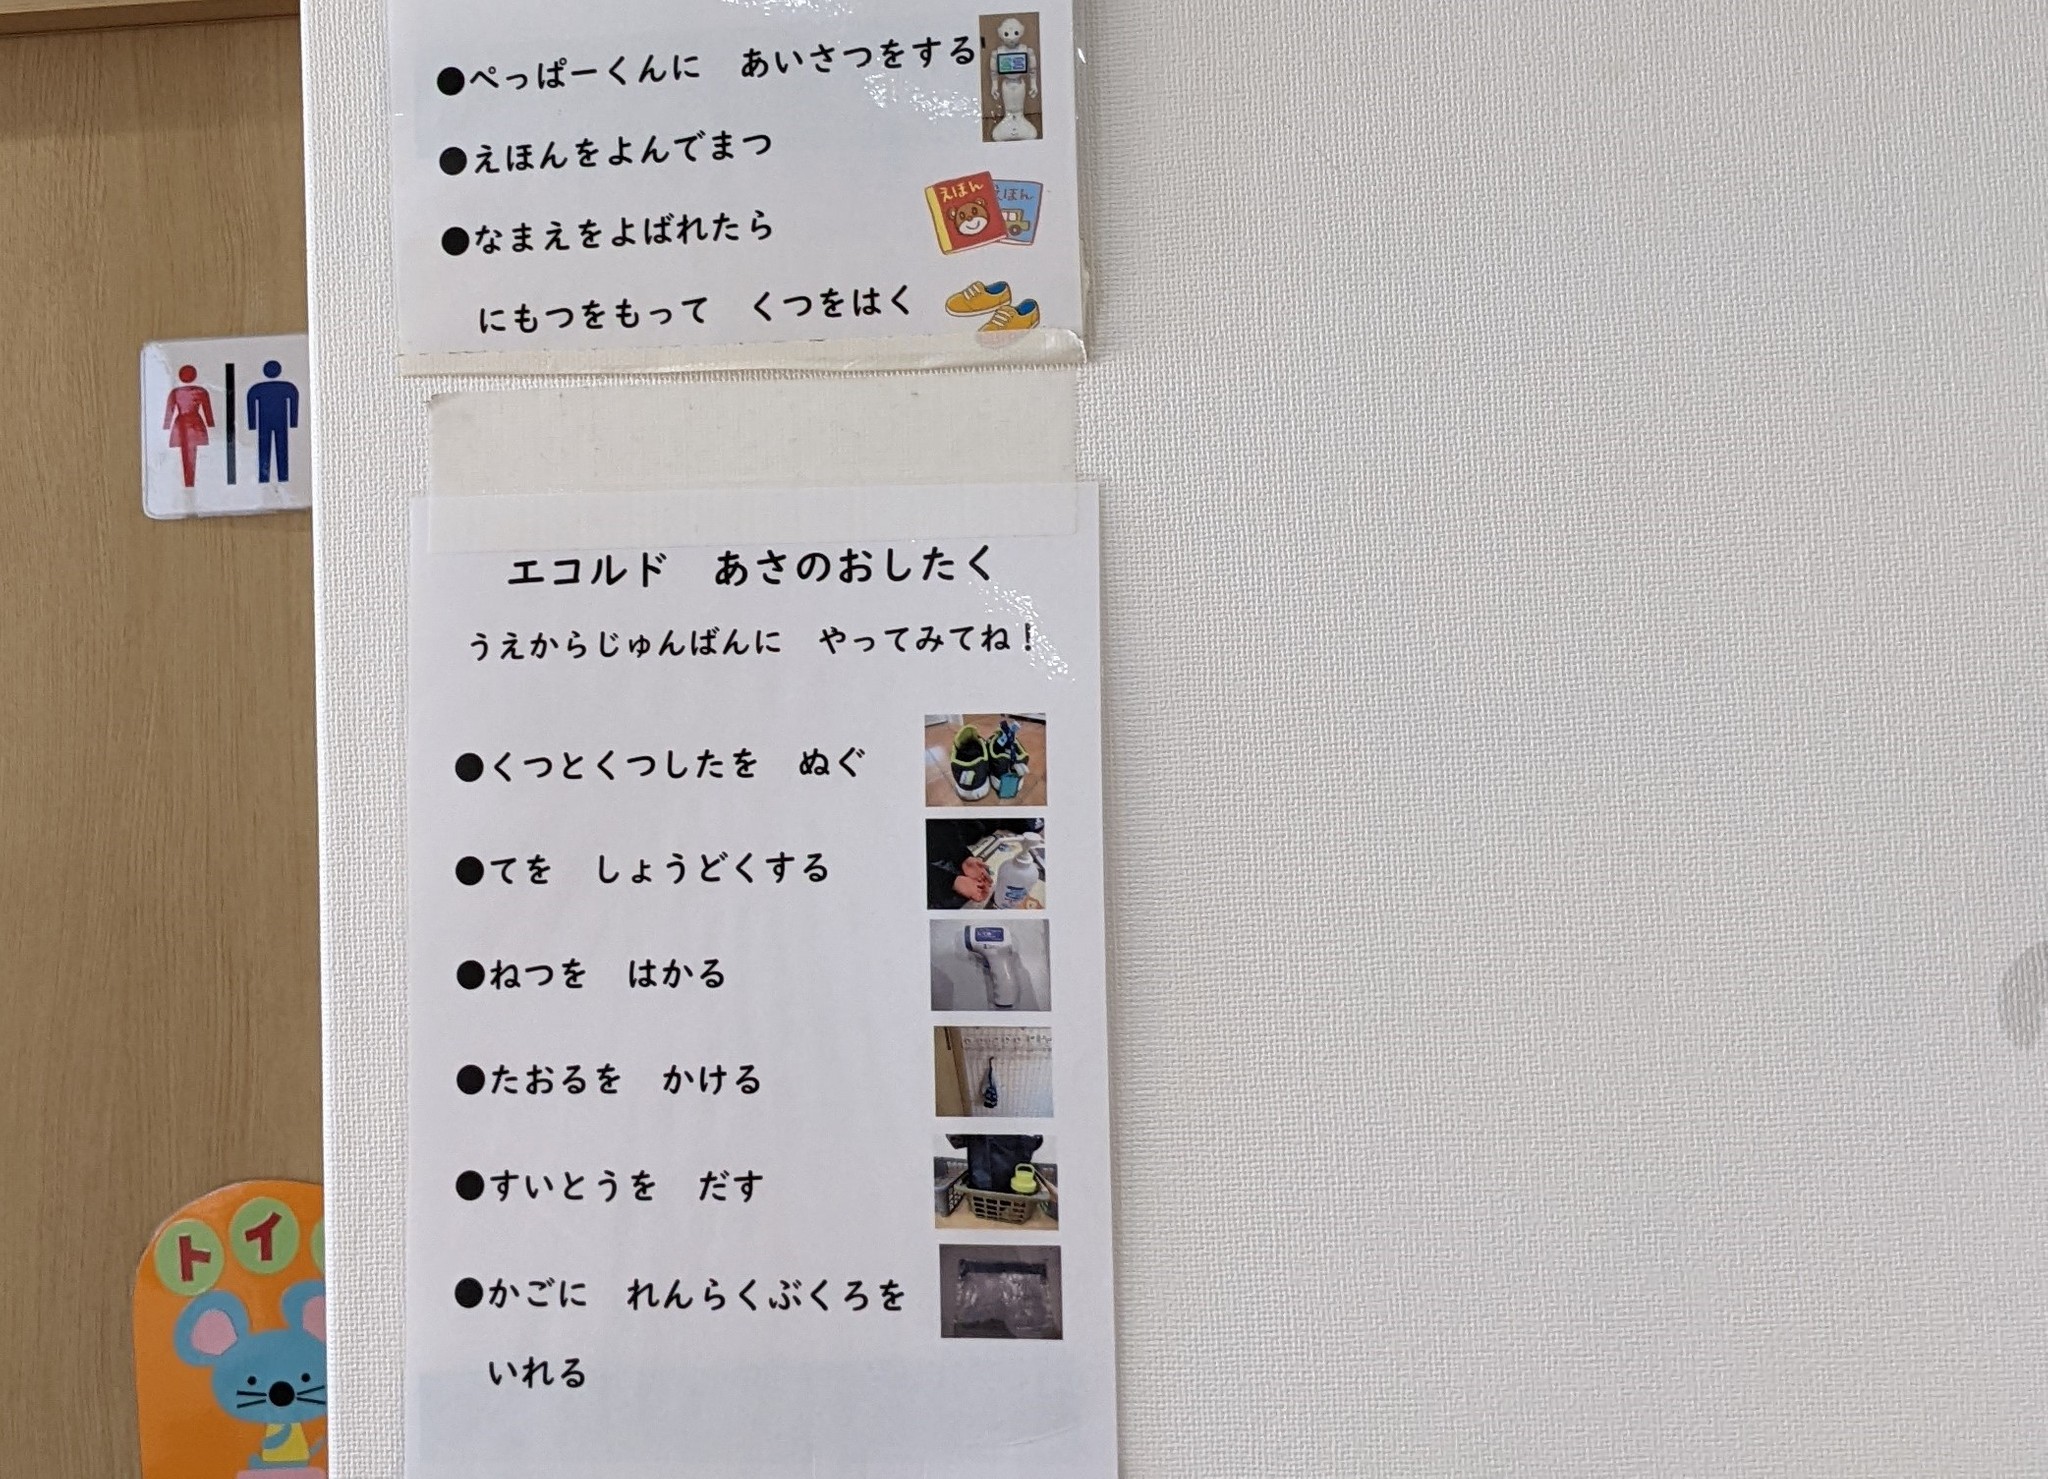 ●ぺっぱーくんに　あいさつをする
●えほんをよんでまつ
えほん
えほん
●なまえをよばれたら
にもつをもって　くつをはく
エコルド　あさのおしたく
うえからじゅんばんに　やってみてね！
●くつとくつしたを　ぬぐ
●てを　しょうどくする
●ねつを　はかる
●たおるを　かける
●すいとうを　だす
●かごに　れんらくぶくろを
いれる
トイ